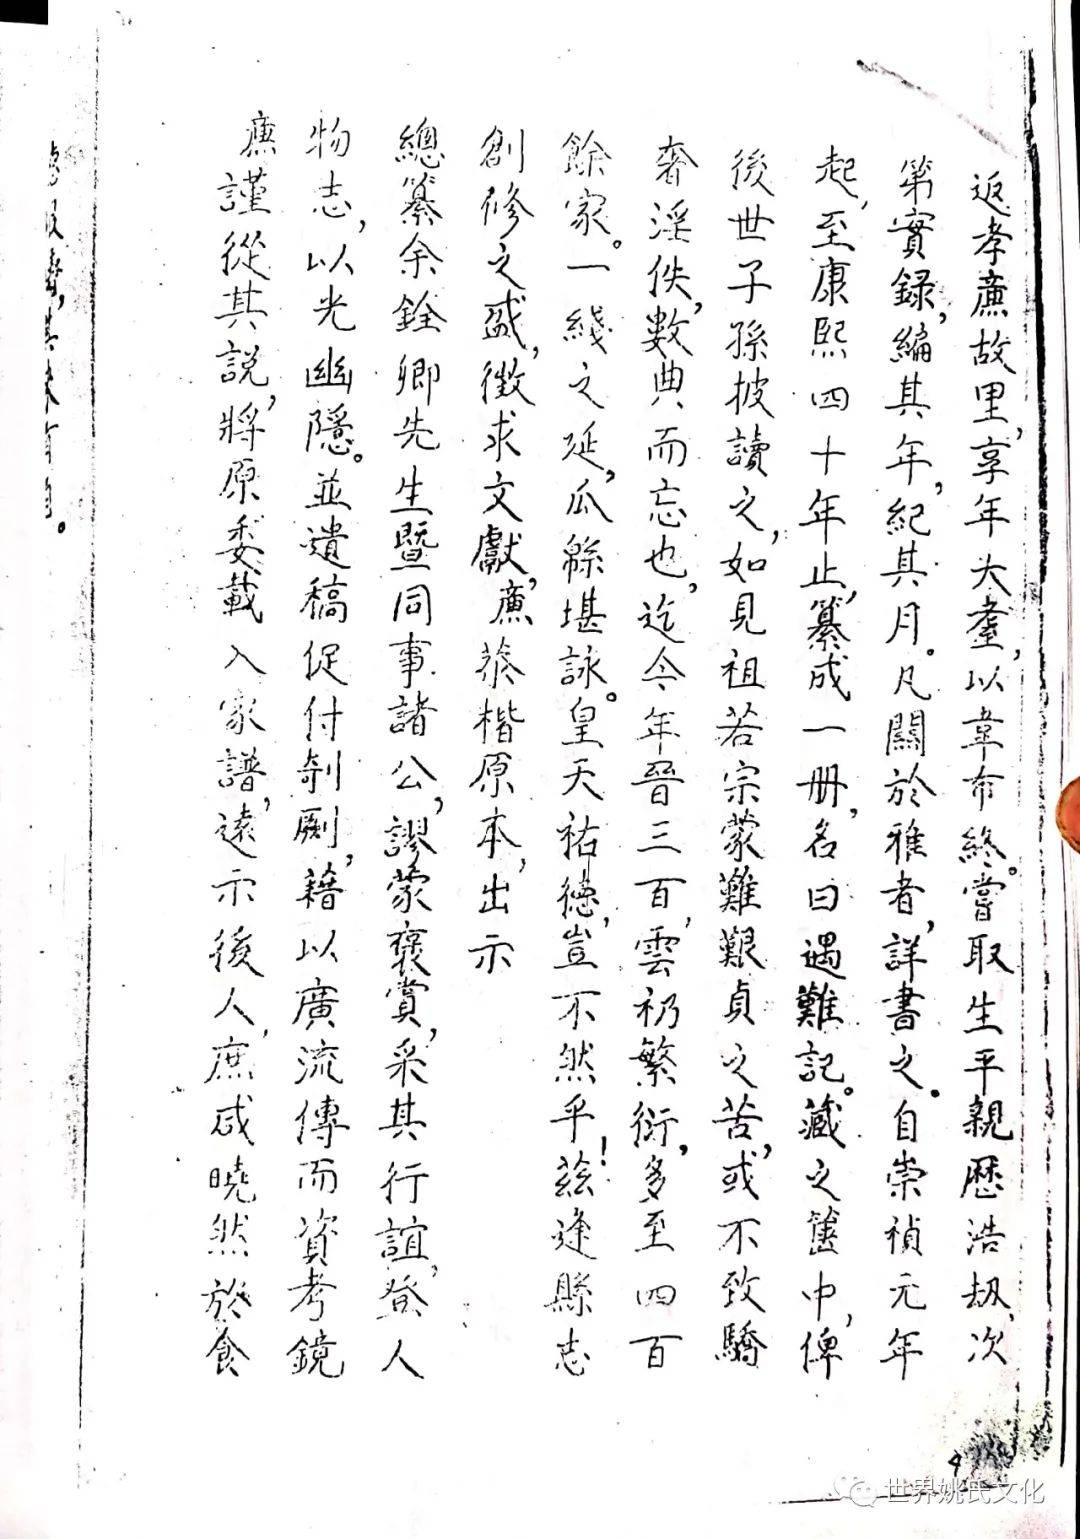 返孝廉故里,享年大耋,以韋布終。嘗取生平親歷浩劫,次
第實録,編其年,紀其月。凡關於雅者,詳書之。自崇禎元年
起,至康熙四十年止,纂成一册,名曰遇難記。藏之篋中,俾
後世子孫披讀之,如見祖若宗蒙難艱貞之苦,或不致驕
奢淫佚,數典而忘也,迄今年晉三百,雲礽繁衍,多至四百
餘家。一綫之延,瓜緜堪詠。皇天祐德,豈不然乎!茲逢縣志
創修之盛,徵求文獻,廉恭楷原本,出示
總纂余銓卿先生暨同事諸公,謬蒙褒賞,采其行誼,登人
物志,以光幽隱。並遺稿促付剞劂,藉以廣流傳而資考鏡
廉謹從其説,將原委載入家譜,遠示後人,庶咸曉然於食
其來有自。
4
世界姚氏文化